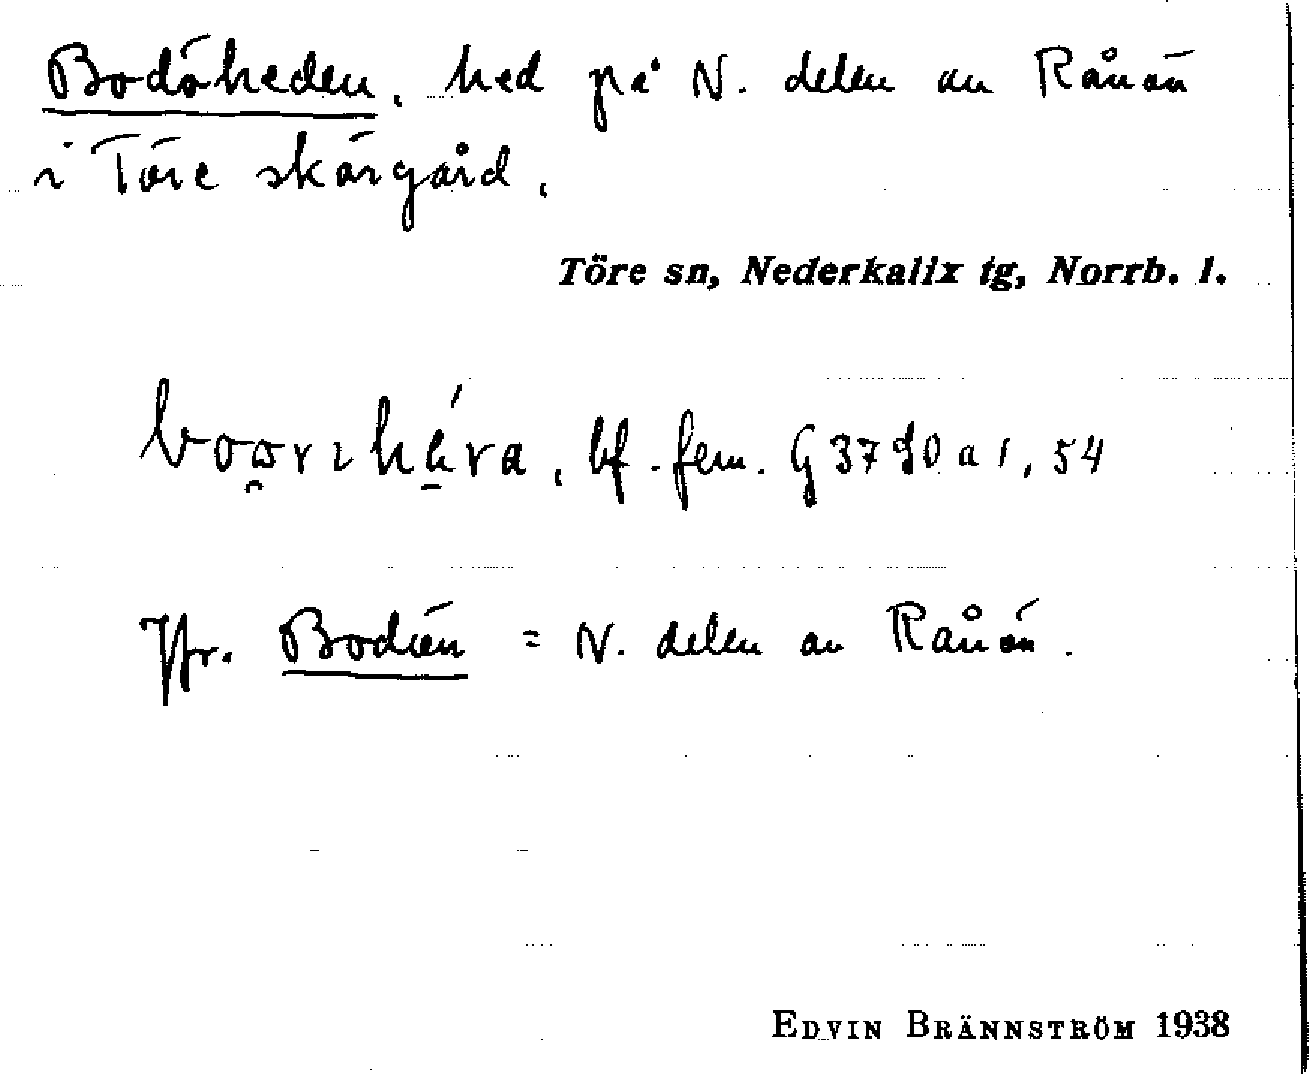 Bodöheden, hed på N. delen av Rånön
i Töre skärgård.
Töre sn, Nederkalix tg, Norrb. l.
bf. fem. G 3790 a 1, 54
Jfr. Bodön = N. delen av Rånön.
EDVIN BRÄNNSTRÖM 1938